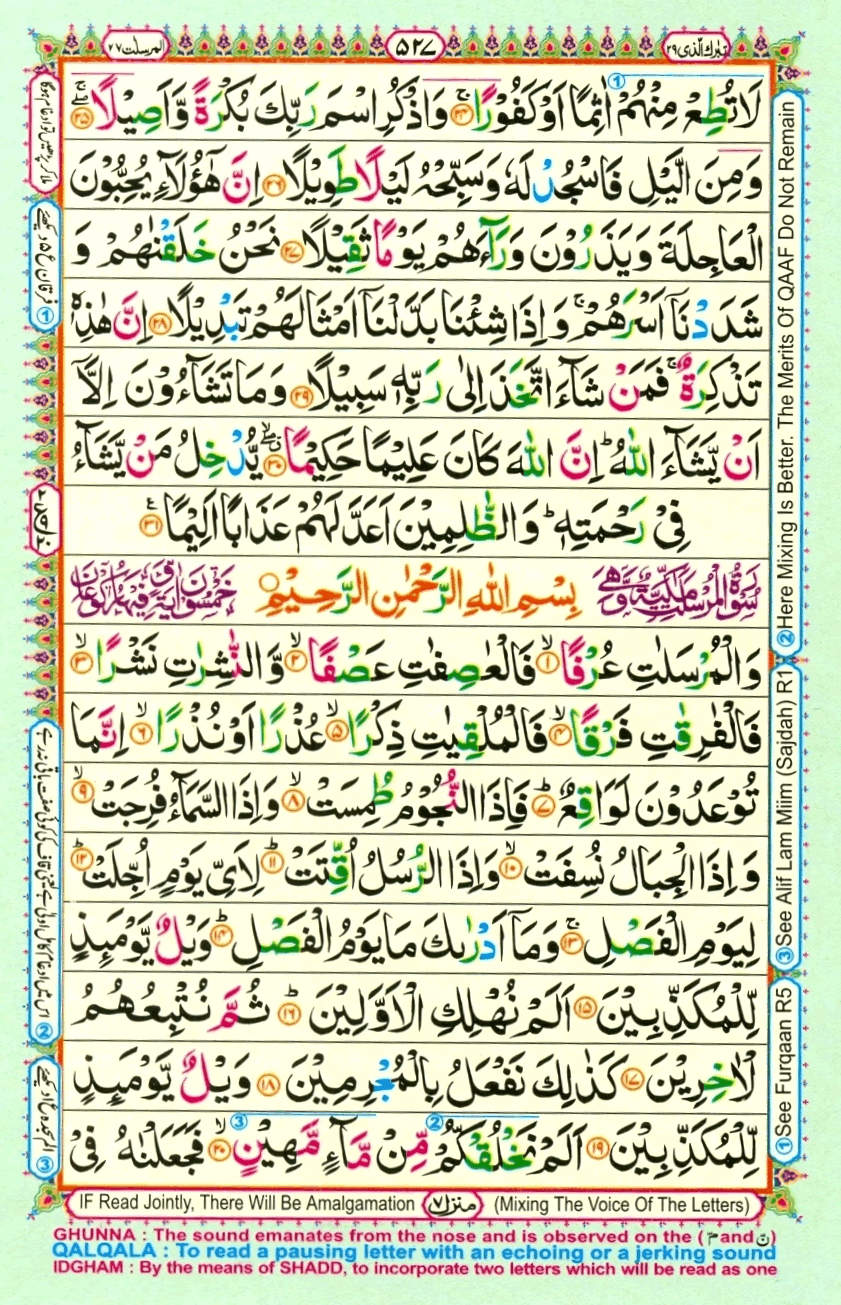 تبٰرك الّذى ٢٩
٥٢٧
المرسلٰت ٧٧
لَا تُطِعْ مِنْهُمْ اٰثِمًا اَوْ كَفُوْرًا ۚ﴿۲۴﴾ وَاذْكُرِ اسْمَ رَبِّكَ بُكْرَةً وَّاَصِيْلًا ﴿۲۵﴾
وَمِنَ الَّيْلِ فَاسْجُدْ لَهٗ وَسَبِّحْهُ لَيْلًا طَوِيْلًا ﴿۲۶﴾ اِنَّ هٰٓؤُلَآءِ يُحِبُّوْنَ
الْعَاجِلَةَ وَيَذَرُوْنَ وَرَآءَهُمْ يَوْمًا ثَقِيْلًا ﴿۲۷﴾ نَحْنُ خَلَقْنٰهُمْ وَ
شَدَدْنَآ اَسْرَهُمْ ۚ وَاِذَا شِئْنَا بَدَّلْنَآ اَمْثَالَهُمْ تَبْدِيْلًا ﴿۲۸﴾ اِنَّ هٰذِهٖ
تَذْكِرَةٌ ۚ فَمَنْ شَآءَ اتَّخَذَ اِلٰى رَبِّهٖ سَبِيْلًا ﴿۲۹﴾ وَمَا تَشَآءُوْنَ اِلَّآ
اَنْ يَّشَآءَ اللّٰهُ ؕ اِنَّ اللّٰهَ كَانَ عَلِيْمًا حَكِيْمًا ﴿۳۰﴾ يُّدْخِلُ مَنْ يَّشَآءُ
فِيْ رَحْمَتِهٖ ؕ وَالظّٰلِمِيْنَ اَعَدَّ لَهُمْ عَذَابًا اَلِيْمًا ﴿۳۱﴾
سُوْرَةُ الْمُرْسَلٰتِ مَكِّيَّةٌ وَّهِيَ بِسْمِ اللّٰهِ الرَّحْمٰنِ الرَّحِيْمِ خَمْسُوْنَ اٰيَةً وَّفِيْهَا رُكُوْعَانِ
وَالْمُرْسَلٰتِ عُرْفًا ۙ﴿۱﴾ فَالْعٰصِفٰتِ عَصْفًا ۙ﴿۲﴾ وَّالنّٰشِرٰتِ نَشْرًا ۙ﴿۳﴾
فَالْفٰرِقٰتِ فَرْقًا ۙ﴿۴﴾ فَالْمُلْقِيٰتِ ذِكْرًا ۙ﴿۵﴾ عُذْرًا اَوْ نُذْرًا ۙ﴿۶﴾ اِنَّمَا
تُوْعَدُوْنَ لَوَاقِعٌ ؕ﴿۷﴾ فَاِذَا النُّجُوْمُ طُمِسَتْ ۙ﴿۸﴾ وَاِذَا السَّمَآءُ فُرِجَتْ ۙ﴿۹﴾
وَاِذَا الْجِبَالُ نُسِفَتْ ۙ﴿۱۰﴾ وَاِذَا الرُّسُلُ اُقِّتَتْ ؕ﴿۱۱﴾ لِاَيِّ يَوْمٍ اُجِّلَتْ ؕ﴿۱۲﴾
لِيَوْمِ الْفَصْلِ ۚ﴿۱۳﴾ وَمَآ اَدْرٰىكَ مَا يَوْمُ الْفَصْلِ ؕ﴿۱۴﴾ وَيْلٌ يَّوْمَئِذٍ
لِّلْمُكَذِّبِيْنَ ﴿۱۵﴾ اَلَمْ نُهْلِكِ الْاَوَّلِيْنَ ؕ﴿۱۶﴾ ثُمَّ نُتْبِعُهُمُ
الْاٰخِرِيْنَ ﴿۱۷﴾ كَذٰلِكَ نَفْعَلُ بِالْمُجْرِمِيْنَ ﴿۱۸﴾ وَيْلٌ يَّوْمَئِذٍ
لِّلْمُكَذِّبِيْنَ ﴿۱۹﴾ اَلَمْ نَخْلُقْكُّمْ مِّنْ مَّآءٍ مَّهِيْنٍ ۙ﴿۲۰﴾ فَجَعَلْنٰهُ فِيْ
② Here Mixing Is Better. The Merits Of QAAF Do Not Remain
③ See Alif Lam Miiim (Sajdah) R1
① See Furqaan R5
ملا کر پڑھیں تو ادغام ہوگا
① فرقان ع ۵ دیکھئے
③ الم سجدہ ع ا دیکھئے
IF Read Jointly, There Will Be Amalgamation منزل ٧ (Mixing The Voice Of The Letters)
GHUNNA : The sound emanates from the nose and is observed on the ( م and ن)
QALQALA : To read a pausing letter with an echoing or a jerking sound
IDGHAM : By the means of SHADD, to incorporate two letters which will be read as one